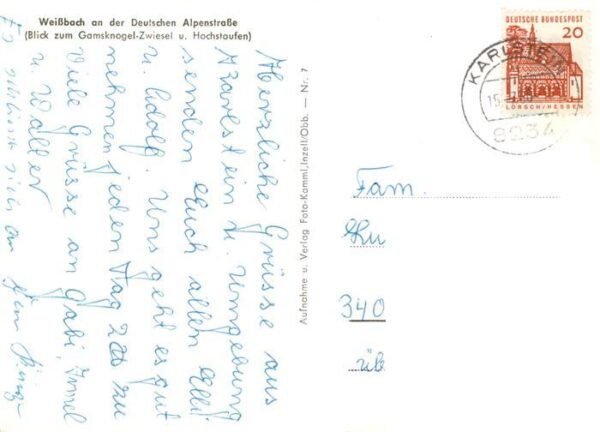 Weißbach an der Deutschen Alpenstraße
(Blick zum Gamsknogel-Zwiesel u. Hochstaufen)
Herzliche Grüsse aus
Karlstein u. Umgebung
senden Euch allen Elli
u. Adolf. Uns geht es gut
nehmen jeden Tag zu
Viele Grüsse an Gabi,
u. Walter
Es schliesst sich an
Aufnahme u. Verlag Foto-Kamml, Inzell/Obb. — Nr. 7
DEUTSCHE BUNDESPOST
20
LORSCH/HESSEN
KARLSTEIN
15.
8234
Fam.
340
üb